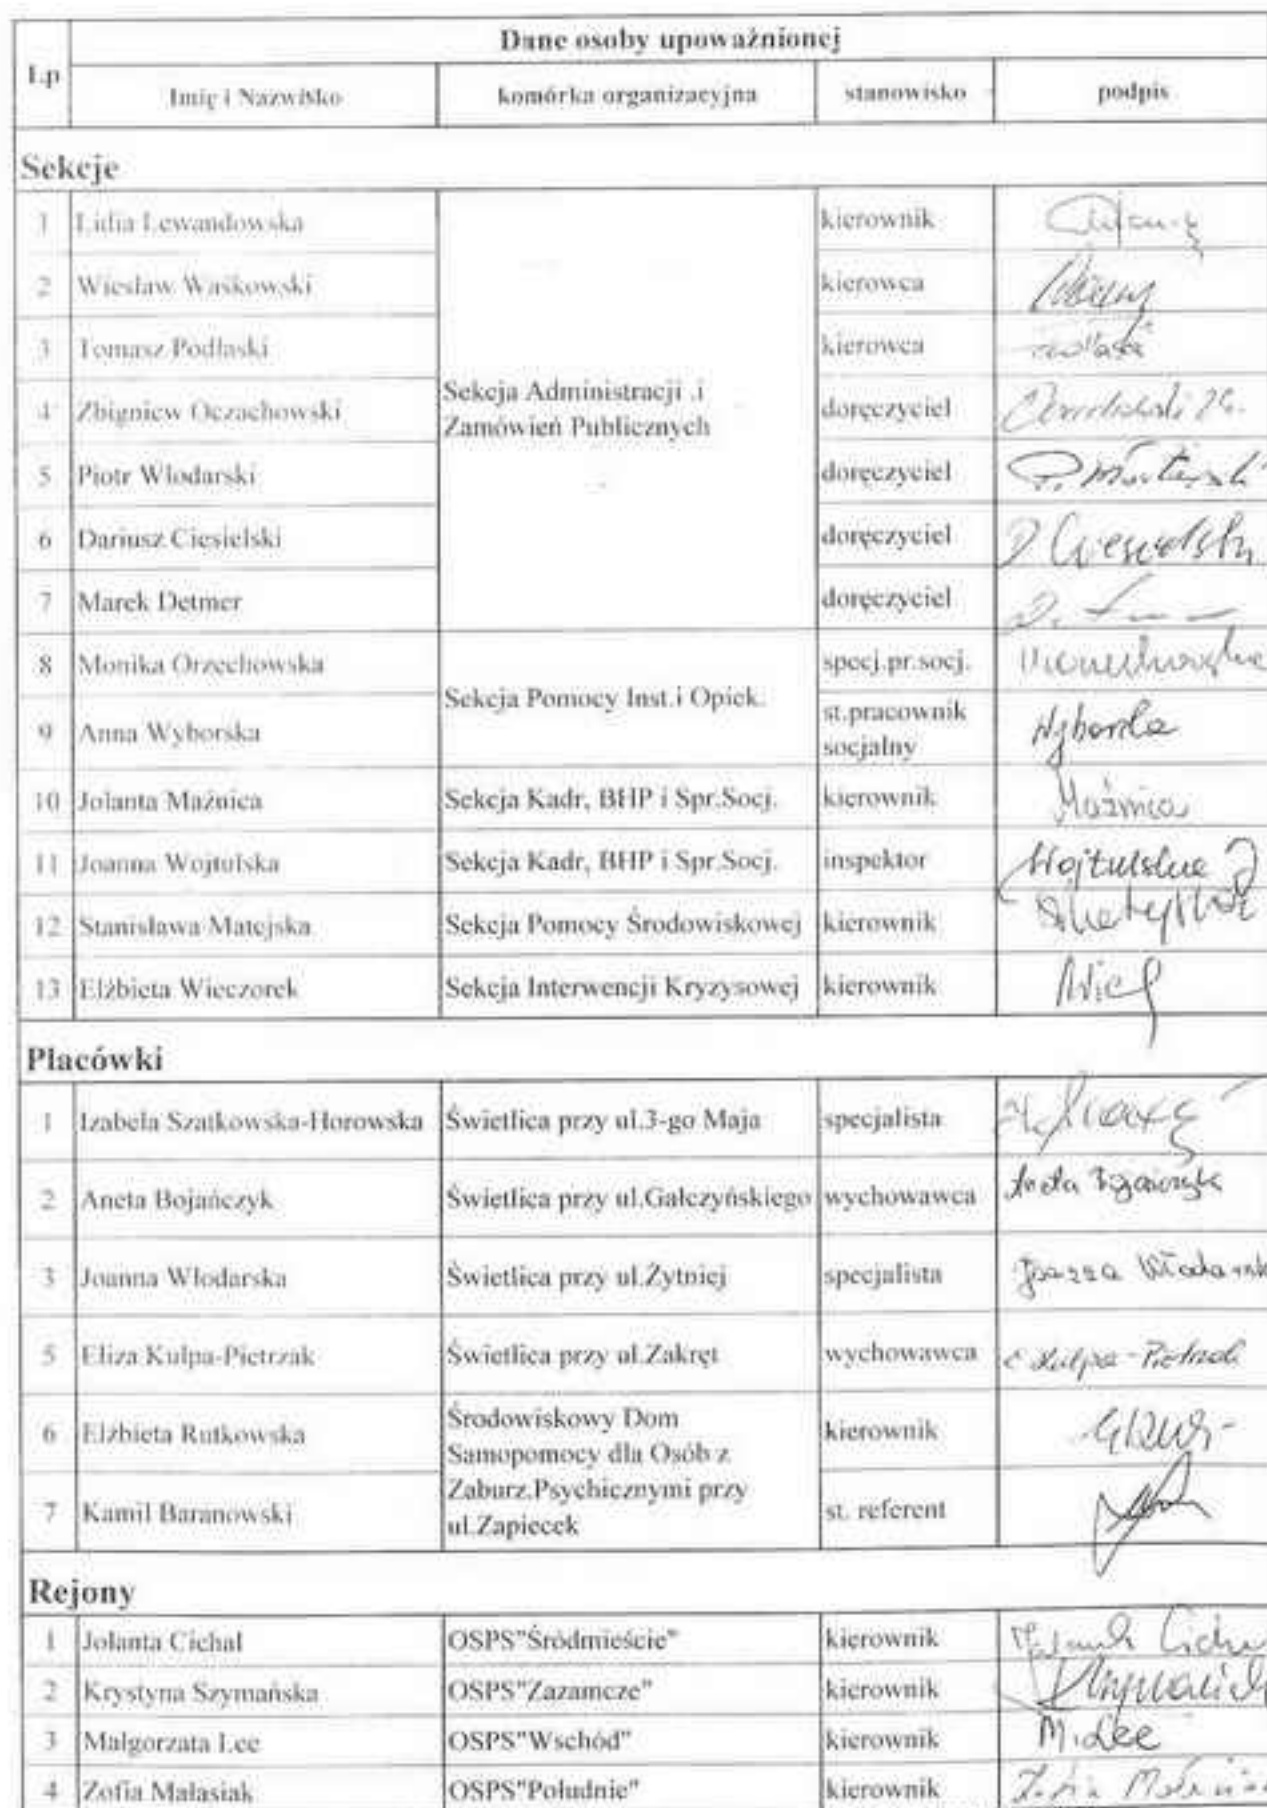 Dane osoby upoważnionej
Lp
Imię i Nazwisko komórka organizacyjna stanowisko podpis
Sekcje
1 Lidia Lewandowska kierownik
2 Wiesław Waśkowski kierowca
3 Tomasz Podlaski kierowca
Sekcja Administracji .i
Zamówień Publicznych
4 Zbigniew Oczachowski doręczyciel
5 Piotr Włodarski doręczyciel P. Włodarski
6 Dariusz Ciesielski doręczyciel D Ciesielski
7 Marek Detmer doręczyciel
8 Monika Orzechowska specj.pr.socj.
Sekcja Pomocy Inst.i Opiek.
9 Anna Wyborska st.pracownik
socjalny Wyborska
10 Jolanta Maźnica Sekcja Kadr, BHP i Spr.Socj. kierownik Maźnica
11 Joanna Wojtulska Sekcja Kadr, BHP i Spr.Socj. inspektor Wojtulska J
12 Stanisława Matejska Sekcja Pomocy Środowiskowej kierownik
13 Elżbieta Wieczorek Sekcja Interwencji Kryzysowej kierownik
Placówki
1 Izabela Szatkowska-Horowska Świetlica przy ul.3-go Maja specjalista
2 Aneta Bojańczyk Świetlica przy ul.Gałczyńskiego wychowawca Aneta Bojańczyk
3 Joanna Włodarska Świetlica przy ul.Żytniej specjalista Joanna Włodarsk
5 Eliza Kulpa-Pietrzak Świetlica przy ul.Zakręt wychowawca E Kulpa-Pietrzak
6 Elżbieta Rutkowska kierownik
Środowiskowy Dom
Samopomocy dla Osób z
Zaburz.Psychicznymi przy
ul.Zapiecek
7 Kamil Baranowski st. referent
Rejony
1 Jolanta Cichal OSPS"Śródmieście" kierownik
2 Krystyna Szymańska OSPS"Zazamcze" kierownik
3 Małgorzata Lee OSPS"Wschód" kierownik M.Lee
4 Zofia Małasiak OSPS"Południe" kierownik